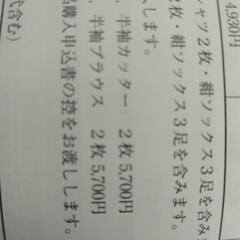 4,930円
シャツ2枚・紺ソックス3足を含み
2枚・紺ソックス3足を含みます。
します。
、半袖カッター 2枚5,700円
、半袖ブラウス 2枚5,700円
品購入申込書の控をお渡しします。
式含む)